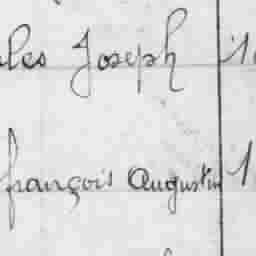 les Joseph 1
françois Augustin 1